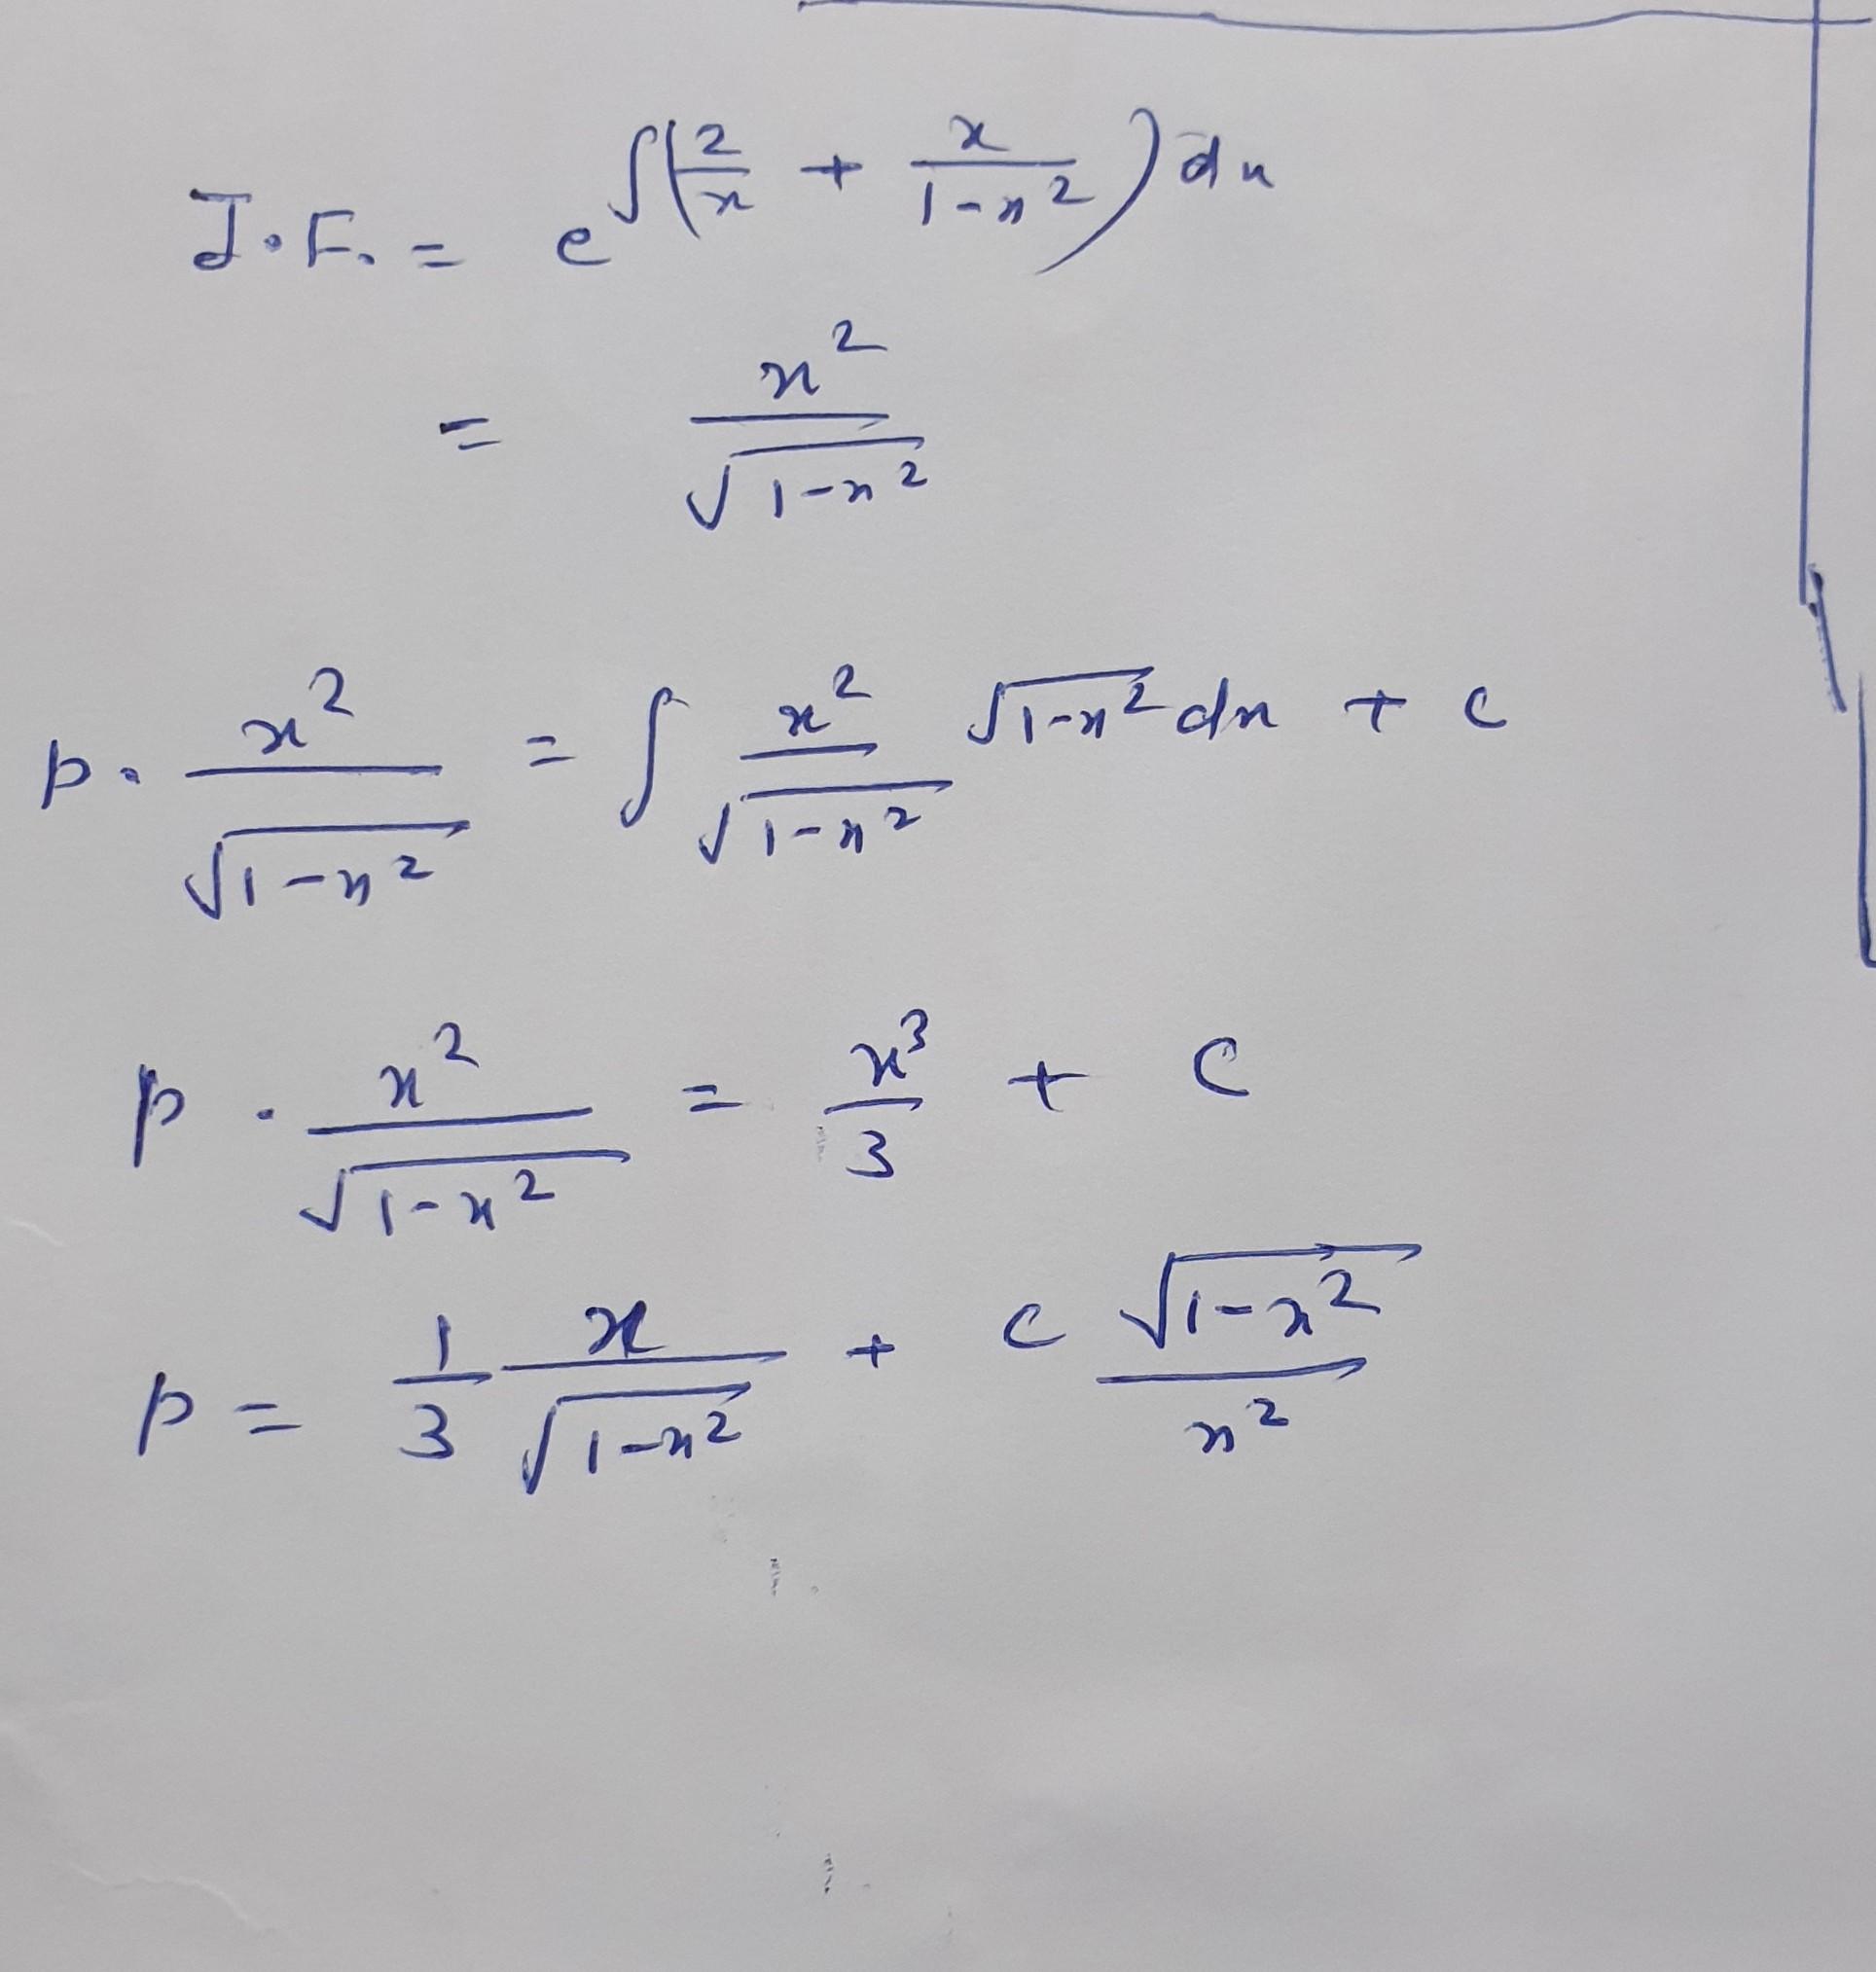 I.F. = e^{∫(2/x + x/(1-x^2))dx}
= x^2/√(1-x^2)
p. x^2/√(1-x^2) = ∫ x^2/√(1-x^2) √(1-x^2) dx + c
p . x^2/√(1-x^2) = x^3/3 + C
p = 1/3 x/√(1-x^2) + c √(1-x^2)/x^2